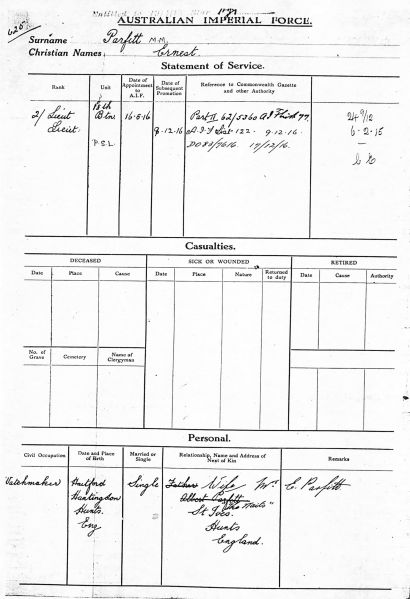 AUSTRALIAN IMPERIAL FORCE.
625
Surname Parfitt M.M.
Christian Names Ernest.
Statement of Service.
Rank Unit Date of Appointment to A.I.F. Date of Subsequent Promotion Reference to Commonwealth Gazette and other Authority
2/ Lieut 18th Btn. 16-5-16 Part II 62/5360
Lieut. 9-12-16 A.I.F. List 122. 9.12.16. 6-2-15
P.S.L. DO83/7616 17/12/16.
Casualties.
DECEASED SICK OR WOUNDED RETIRED
Date Place Cause Date Place Nature Returned to duty Date Cause Authority
No. of Grave Cemetery Name of Clergyman
Personal.
Civil Occupation Date and Place of Birth Married or Single Relationship, Name and Address of Next of Kin Remarks
Watchmaker Hartford Single Father Wife Mrs E. Parfitt
Huntingdon Albert Parfitt "The Waits"
Hunts. St Ives.
Eng Hunts
England.